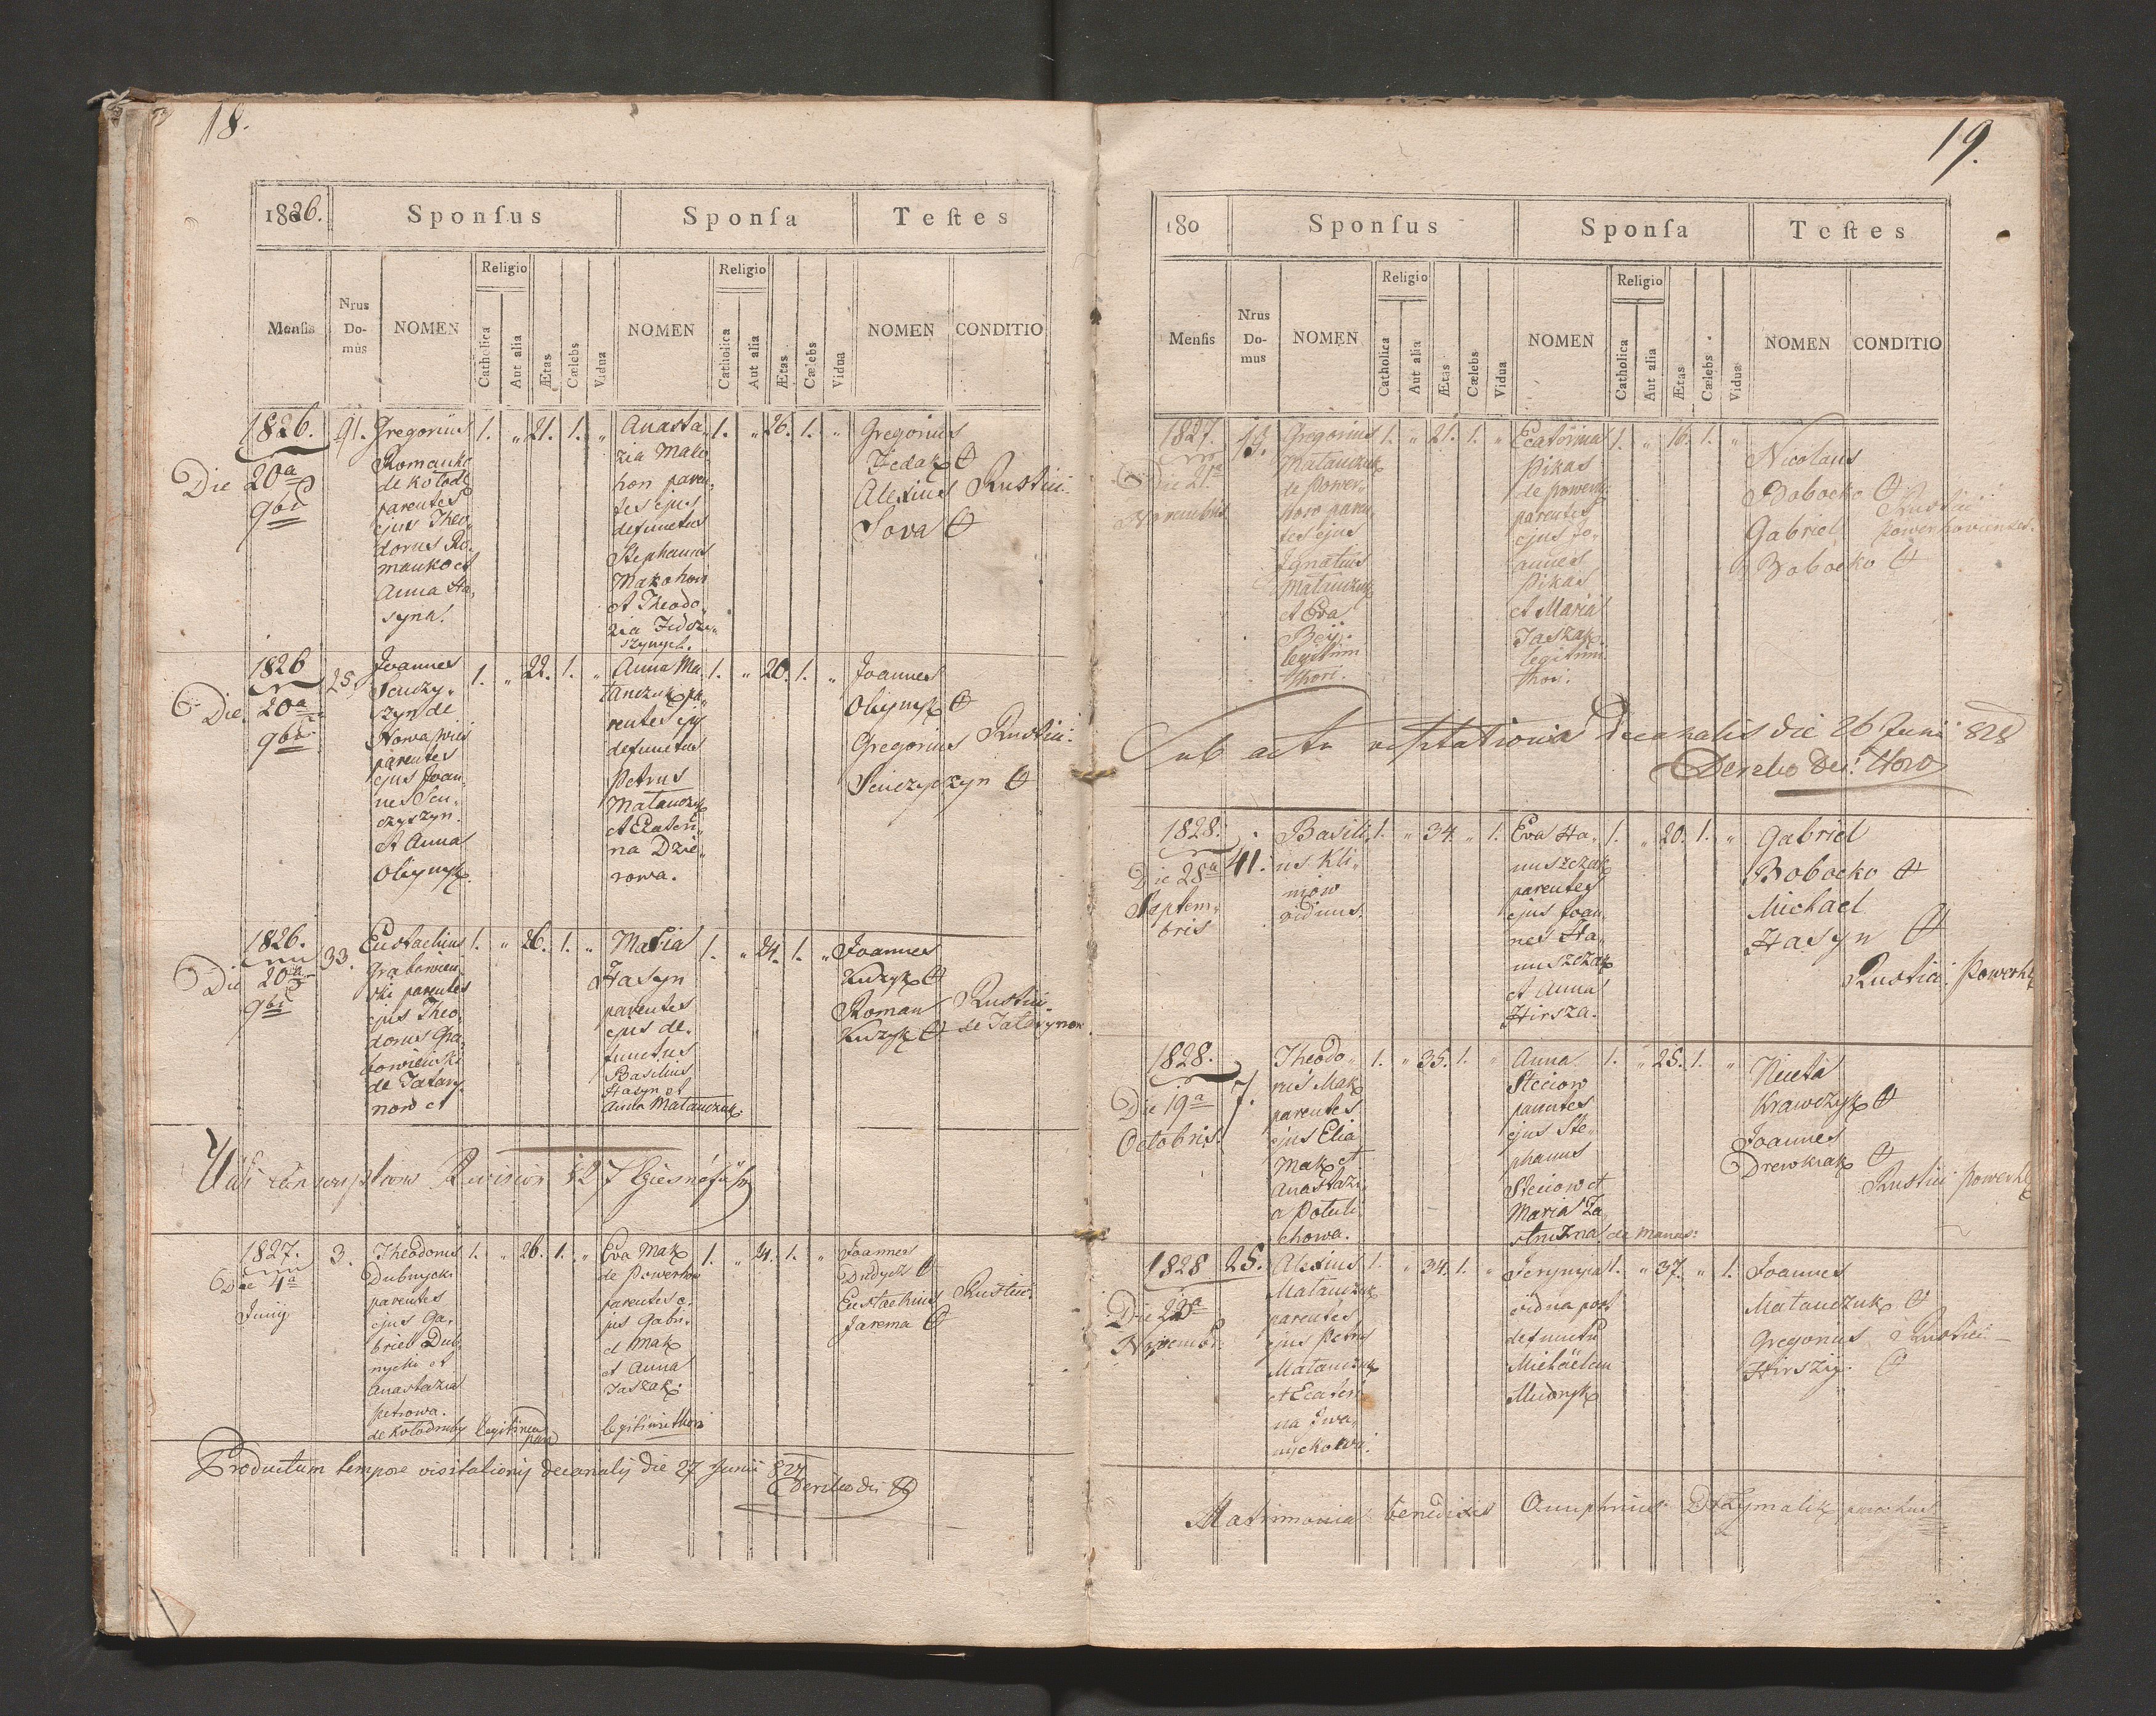 18.
1826.
Sponsus
Sponsa
Testes
Mensis
Nrus Domûs
NOMEN
Religio
Catholica
Aut alia
Ætas
Cælebs
Vidua
NOMEN
Religio
Catholica
Aut alia
Ætas
Cælebs
Vidua
NOMEN
CONDITIO
1826.
Die 20a
9bris
91.
Gregorius
Romanko
de Kolod
parentes
ejus Theo-
dorus Ro-
manko et
Anna Ha-
syna.
1. " 21. 1. "
Anasta-
zia Mako-
hon paren-
tes ejus
defunctus
Stephanus
Makohon
et Theodo-
zia Fedczy-
szynych.
1. " 26. 1. "
Gregorius
Fedak
Alexius
Sova
Rustici.
1826
Die 20a
9bris
25.
Joannes
Senczy-
szyn de
Nowawies
parentes
ejus Joan-
nes Sen-
czyszyn
et Anna
Oliynyk.
1. " 22. 1. "
Anna Ma-
tanczuk pa-
rentes ejus
defunctus
Petrus
Matanczuk
et Ecateri-
na Dzie-
rowa.
1. " 20. 1. "
Joannes
Oliynyk
Gregorius
Senczyszyn
Rustici.
1826.
Die 20a
9bris
33.
Eustachius
Grabowien-
ski parentes
ejus Theo-
dorus Gra-
bowienski
de Tatary-
now et
1. " 26. 1. "
Maria
Hasyn
parentes
ejus de-
functus
Basilius
Hasyn et
Anna Matanczuk.
1. " 24. 1. "
Joannes
Kuzyk
Roman
Kuzyk
Rustici
de Tatarynow
1827.
Die 4a
Junij
3.
Theodorus
Dubnycki
parentes
ejus Ga-
briel Dub-
nycki et
Anastazia
Petrowa.
de Kolodruby legitimea
1. " 26. 1. "
Eva Mak
de Powerhow
parentes e-
jus Gabri-
el Mak
et Anna
Jaszak.
legitimi thori
1. " 24. 1. "
Joannes
Dudycz
Eustachius
Jarema
Rustici.
Productum tempore visitationis decanalis die 27 Junii 827
19.
180
Sponsus
Sponsa
Testes
Mensis
Nrus Domus
NOMEN
Religio
Catholica
Aut alia
Ætas
Cælebs
Vidua
NOMEN
Religio
Catholica
Aut alia
Ætas
Cælebs
Vidua
NOMEN
CONDITIO
1827.
Die 21a
Novembris
19.
Gregorius
Matanczuk
de Power-
how paren-
tes ejus
Ignatius
Matanczuk
et Eva
Bey.
legitimi
thori.
1. " 21. 1. "
Ecaterina
Pikas
de Powerh
parentes
ejus Jo-
annes
Pikas
et Maria
Jaszak.
legitimi
thori.
1. " 16. 1. "
Nicolaus
Bobocko
Gabriel
Bobocko
Rustici
Powerhovienses.
Sub actu visitationis Decanalis die 26 Junii 828
1828.
Die 28a
Septem-
bris
41.
Basili-
us Kli-
mow
viduus.
1. " 34. " 1.
Eva Ha-
nuszczak
parentes
ejus Joan-
nes Ha-
nuszczak
et Anna
Hirsza.
1. " 20. 1. "
Gabriel
Bobocko
Michael
Hasyn
Rustici Powerh
1828.
Die 19a
Octobris.
7.
Theodo-
rus Mak
parentes
ejus Elia
Mak et
Anastazi-
a Potuli-
chowa.
1. " 35. 1. "
Anna
Steciow
parentes
ejus Ste-
phanus
Steciow et
Maria Za-
1. " 25. 1. "
Niceta
Krawczyk
Joannes
Drewkiak
Rustici Powerh
1828
Die 23a
Novembr.
25.
Alexius
Matanczuk
parentes
ejus Petrus
Matanczuk
et Ecateri-
na Iwa-
nyckowa.
1. " 34. 1. "
vidua post
defunctu
Michaelem
Mudryk
1. " 37. " 1.
Joannes
Matanczuk
Gregorius
Hirszij.
Rustici
Matrimonia benedixit Onuphrius parochus